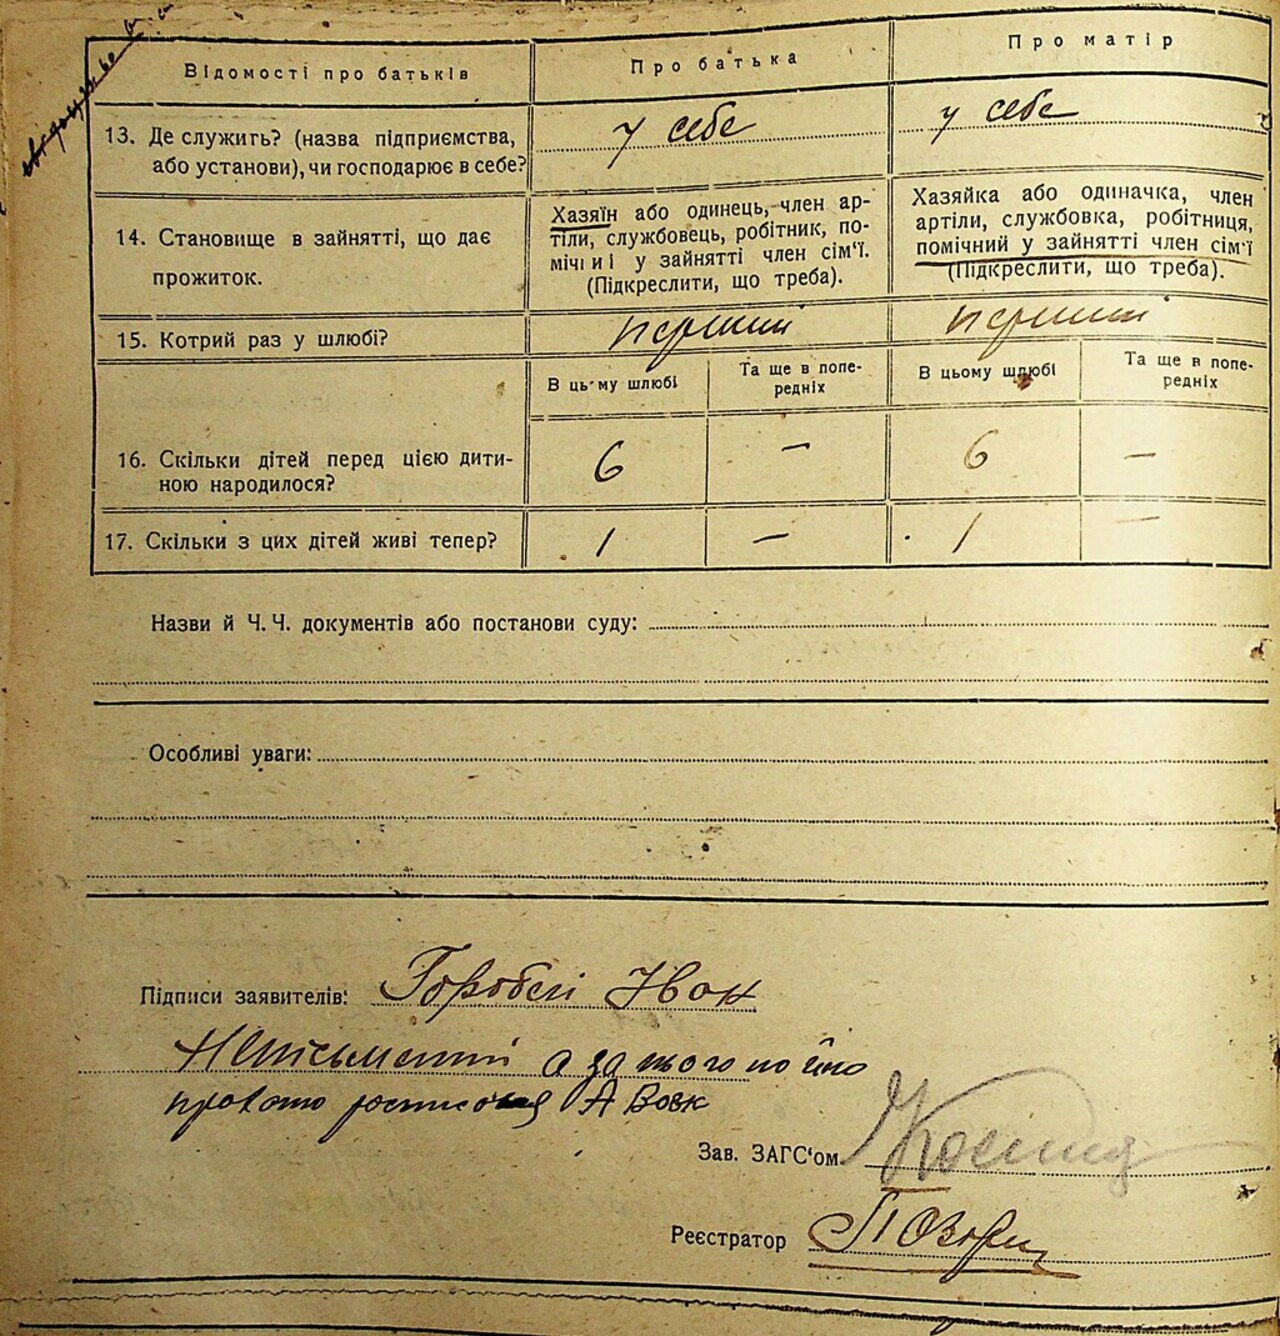 Відомості про батьків
Про батька
Про матір
13. Де служить? (назва підприємства,
або установи), чи господарює в себе?
у себе
у себе
14. Становище в зайнятті, що дає
прожиток.
Хазяїн або одинець, член ар-
тіли, службовець, робітник, по-
мічний у зайнятті член сім'ї.
(Підкреслити, що треба).
Хазяйка або одиначка, член
артіли, службовка, робітниця,
помічний у зайнятті член сім'ї
(Підкреслити, що треба).
15. Котрий раз у шлюбі?
перший
перший
В цьому шлюбі
Та ще в попе-
редніх
В цьому шлюбі
Та ще в попе-
редніх
16. Скільки дітей перед цією дити-
ною народилося?
6
—
6
—
17. Скільки з цих дітей живі тепер?
1
—
1
—
Назви й Ч. Ч. документів або постанови суду:
Особливі уваги:
Підписи заявителів:
а за нього по його
А Вовк
Зав. ЗАГС'ом
Реєстратор